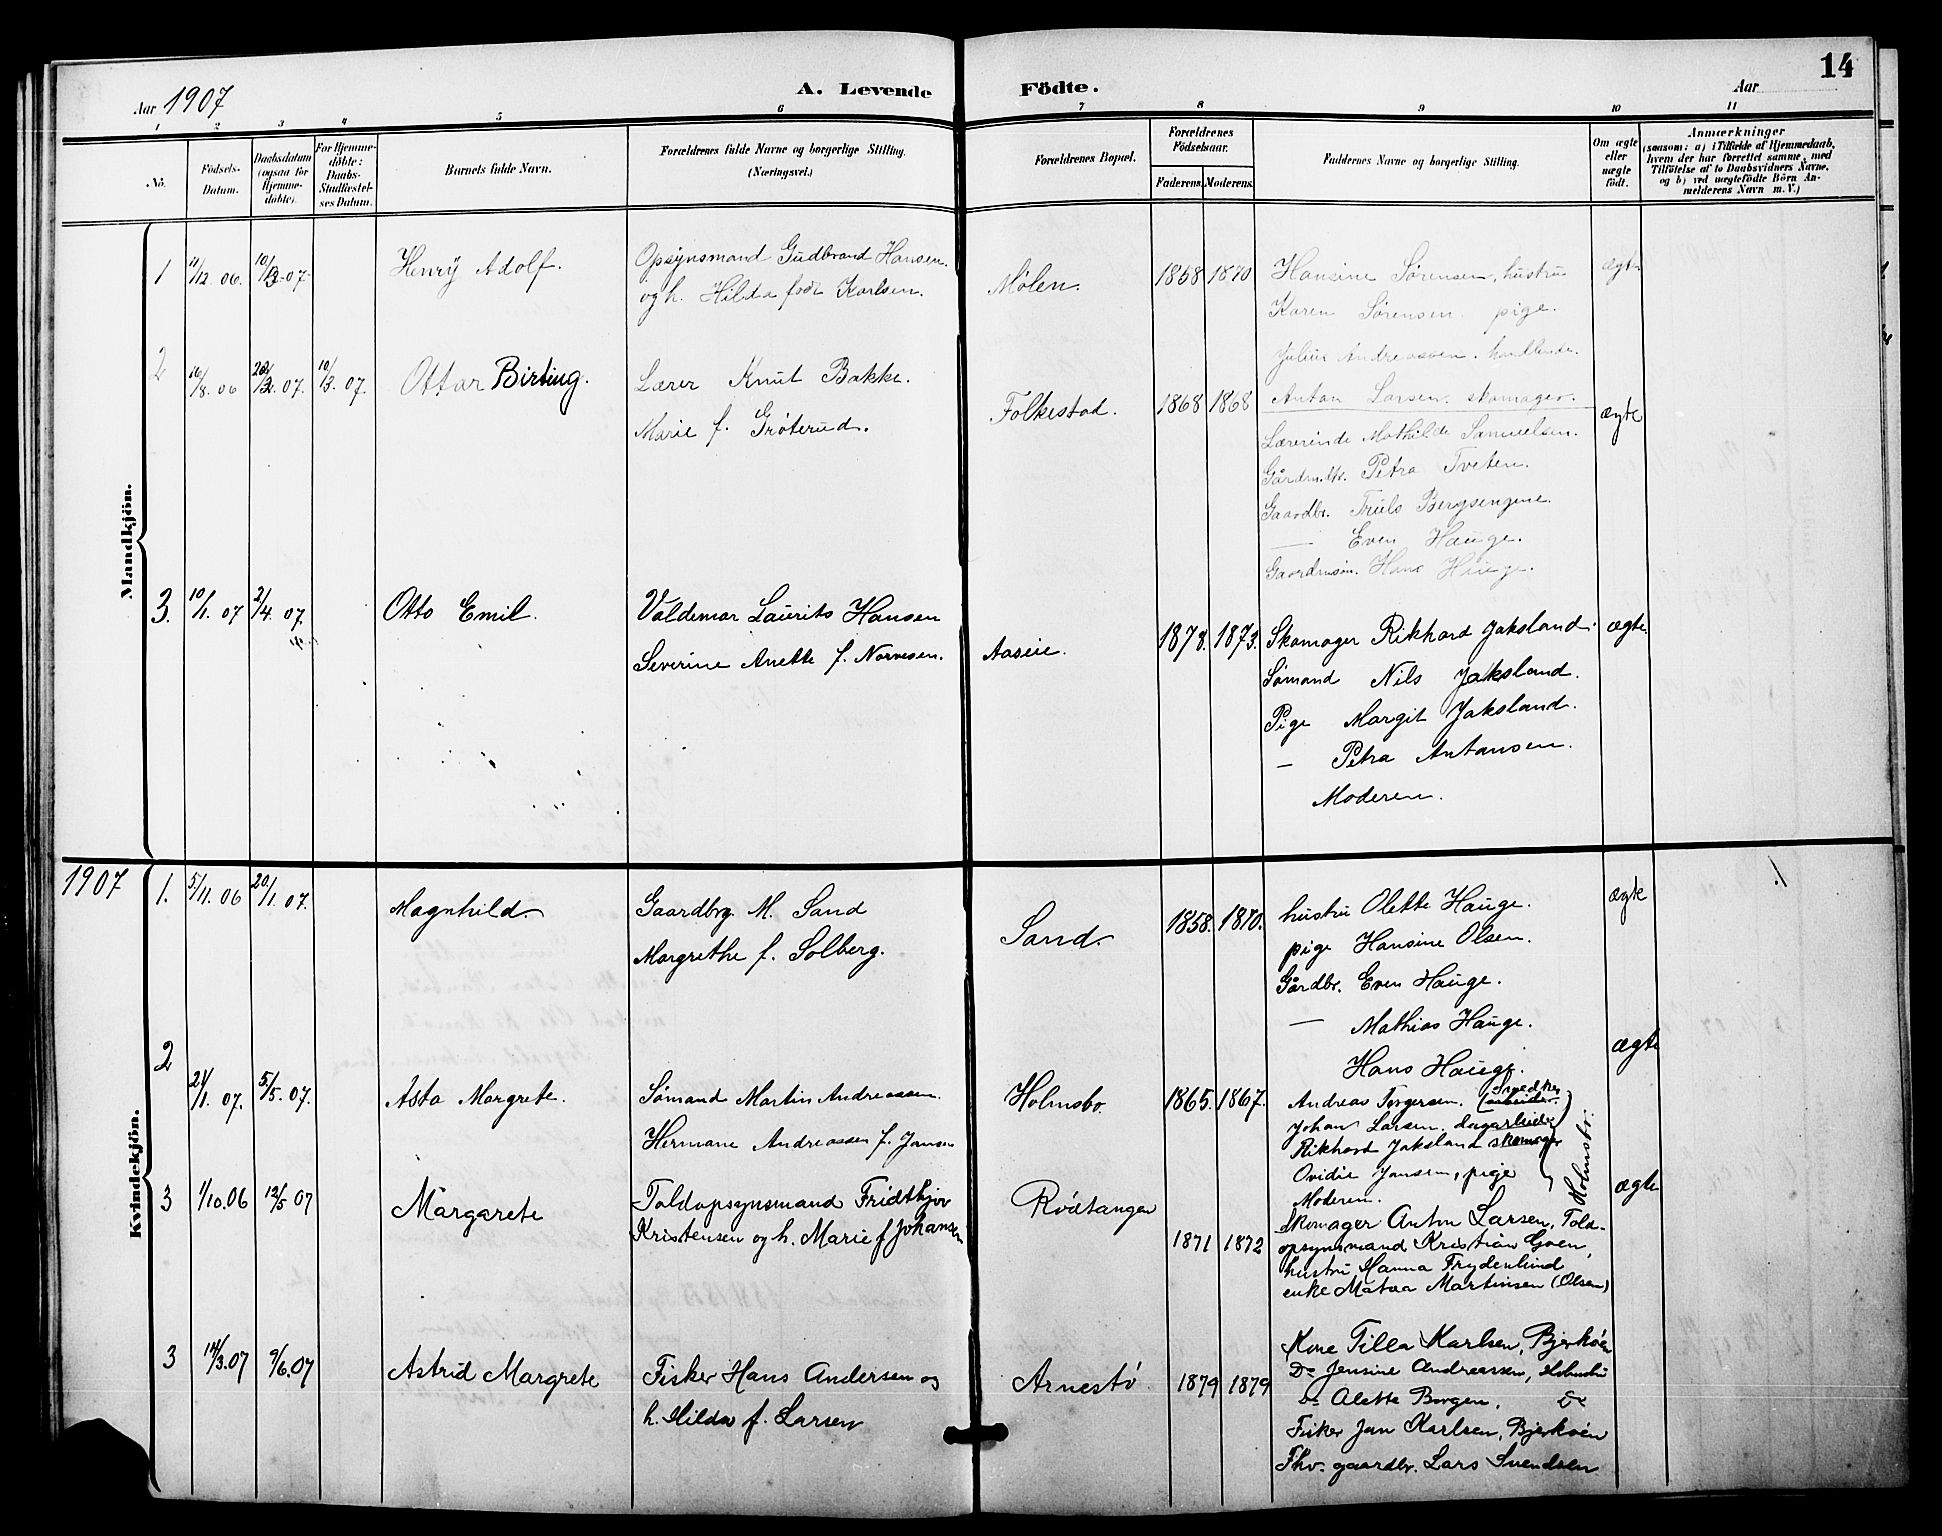 14
Aar 1907
A. Levende Födte.
Aar
1 2 3 4 5 6 7 8 9 10 11
No.
Födsels-Datum.
Daabsdatum (ogsaa for Hjemmedöbte).
For Hjemmedöbte: Daabs-Stadfæstelses Datum.
Barnets fulde Navn.
Forældrenes fulde Navne og borgerlige Stilling. (Næringsvei.)
Forældrenes Bopæl.
Forældrenes Födselsaar.
Faderens. Moderens.
Faddernes Navne og borgerlige Stilling.
Om ægte eller uægte födt.
Anmærkninger
(saasom: a) i Tilfælde af Hjemmedaab, hvem der har forrettet samme, med Tilföielse af to Daabsvidners Navne, og b) ved uægtefödte Börn Anmelderens Navn m. V.)
Mandkjön.
1 11/12. 06. 10/3. 07. Henry Adolf. Opsynsmand Gudbrand Hansen. Mølen. 1858 1870 Hansine Sørensen, hustru ægte
og h. Hilda født Karlsen. Karen Sørensen. pige.
Julius Andreassen. handlende.
Anton Larsen. skomager.
2 /8. 06 07. 10/3. 07. Ottar Birting. Lærer Knut Bakke. Folkestad. 1868 1868 ægte
Marie f. Grøterud.
Lærerinde Mathilde Samuelsen.
Gårdm.dtr. Petra Tveten.
Gaardbr. Truls Bergsengene.
— Even Hauge.
Gaardmsøn. Hans Hauge.
3. 10/1. 07 2/4. 07. Otto Emil. Valdemar Laurits Hansen Aaseie. 1878. 1873. Skomager Rikhard Jaksland. ægte.
Severine Anette f. Norvesen. Sømand Nils Jaksland.
Pige Margit Jaksland.
— Petra Antansen.
Moderen.
1907
Kvindekjön.
1. 5/11. 06 20/1. 07. Magnhild Gaardbrg. M. Sand Sand. 1858. 1870. hustru Olette Hauge. ægte
Margrethe f. Solberg. pige Hansine Olsen.
Gårdbr. Even Hauge.
— Mathias Hauge.
Hans Hauge.
2 21/1. 07. 5/5. 07. Asta Margrete. Sømand Martin Andreassen. Holmsbo 1865. 1867. Andreas Torgersen. (Snedker ægte
Hermane Andreassen f. Jansen Johan Larsen. dagarbeider
Rikhard Jaksland skomager
Ovidie Jansen, pige
Moderen.
Holmsbo.
3 1/10.06 12/5 07 Margarete Toldopsynsmand Fridthjov Rødtangen 1871 1872 Skomager Anton Larsen, Told- ægte
Kristensen og h. Marie f Johansen opsynsmand Kristian Goen,
hustru Hanna Frydenlund
enke Matea Martinsen (Olsen)
3 14/3.07 9/6.07 Astrid Margrete Fisker Hans Andersen og Arnestø 1879 1879 Kone Tilla Karlsen, Bjerkøen
h. Hilda f. Larsen Do Jensine Andreassen, Holmsbu
Do Alette Borgen, Do
Fisker Jan Karlsen, Bjerkøen
Fhv. gaardbr. Lars Svendsen